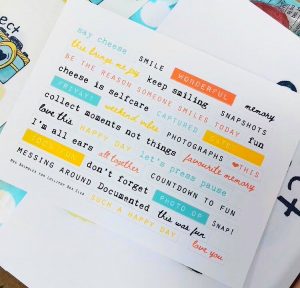 ect
say cheese
this brings me joy SMILE WONDERFUL
BE THE REASON SOMEONE SMILES TODAY
cheese is selfcare keep smiling memory
PRIVATE CAPTURED SNAPSHOTS
collect moments not things fun
weekend vibes PHOTOGRAPHS CUTE
love this HAPPY DAY let's press pause ♥THIS
I'm all ears favourite memory
100% FUN all together COUNTDOWN TO FUN
MESSING AROUND don't forget PHOTO OP SNAP!
Documented this was fun
SUCH A HAPPY DAY love you